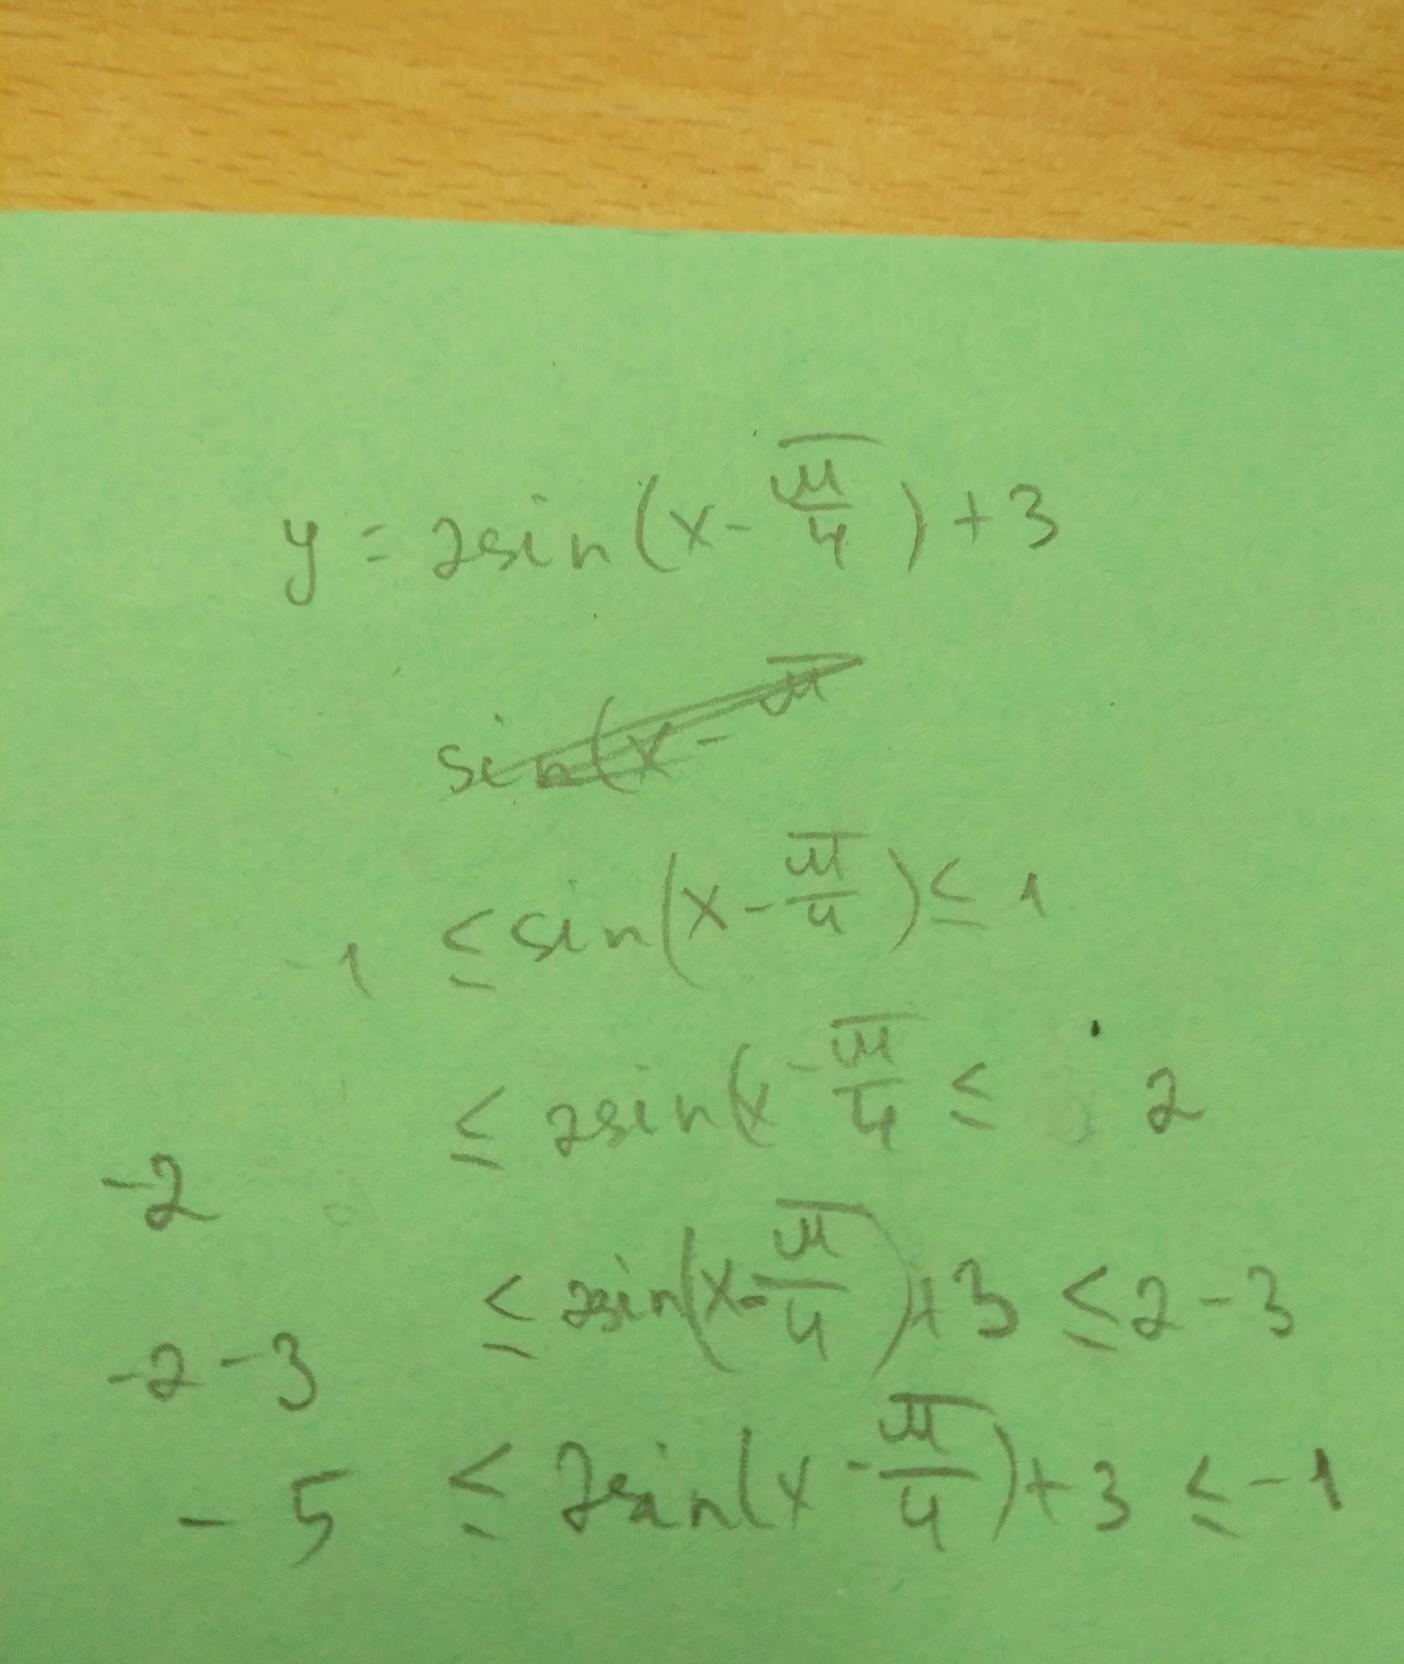 y = 2sin(x - π/4) + 3
sin(x - π
-1 ≤ sin(x - π/4) ≤ 1
-2 ≤ 2sin(x - π/4 ≤ 2
-2 - 3 ≤ 2sin(x - π/4) + 3 ≤ 2 - 3
-5 ≤ 2sin(x - π/4) + 3 ≤ -1